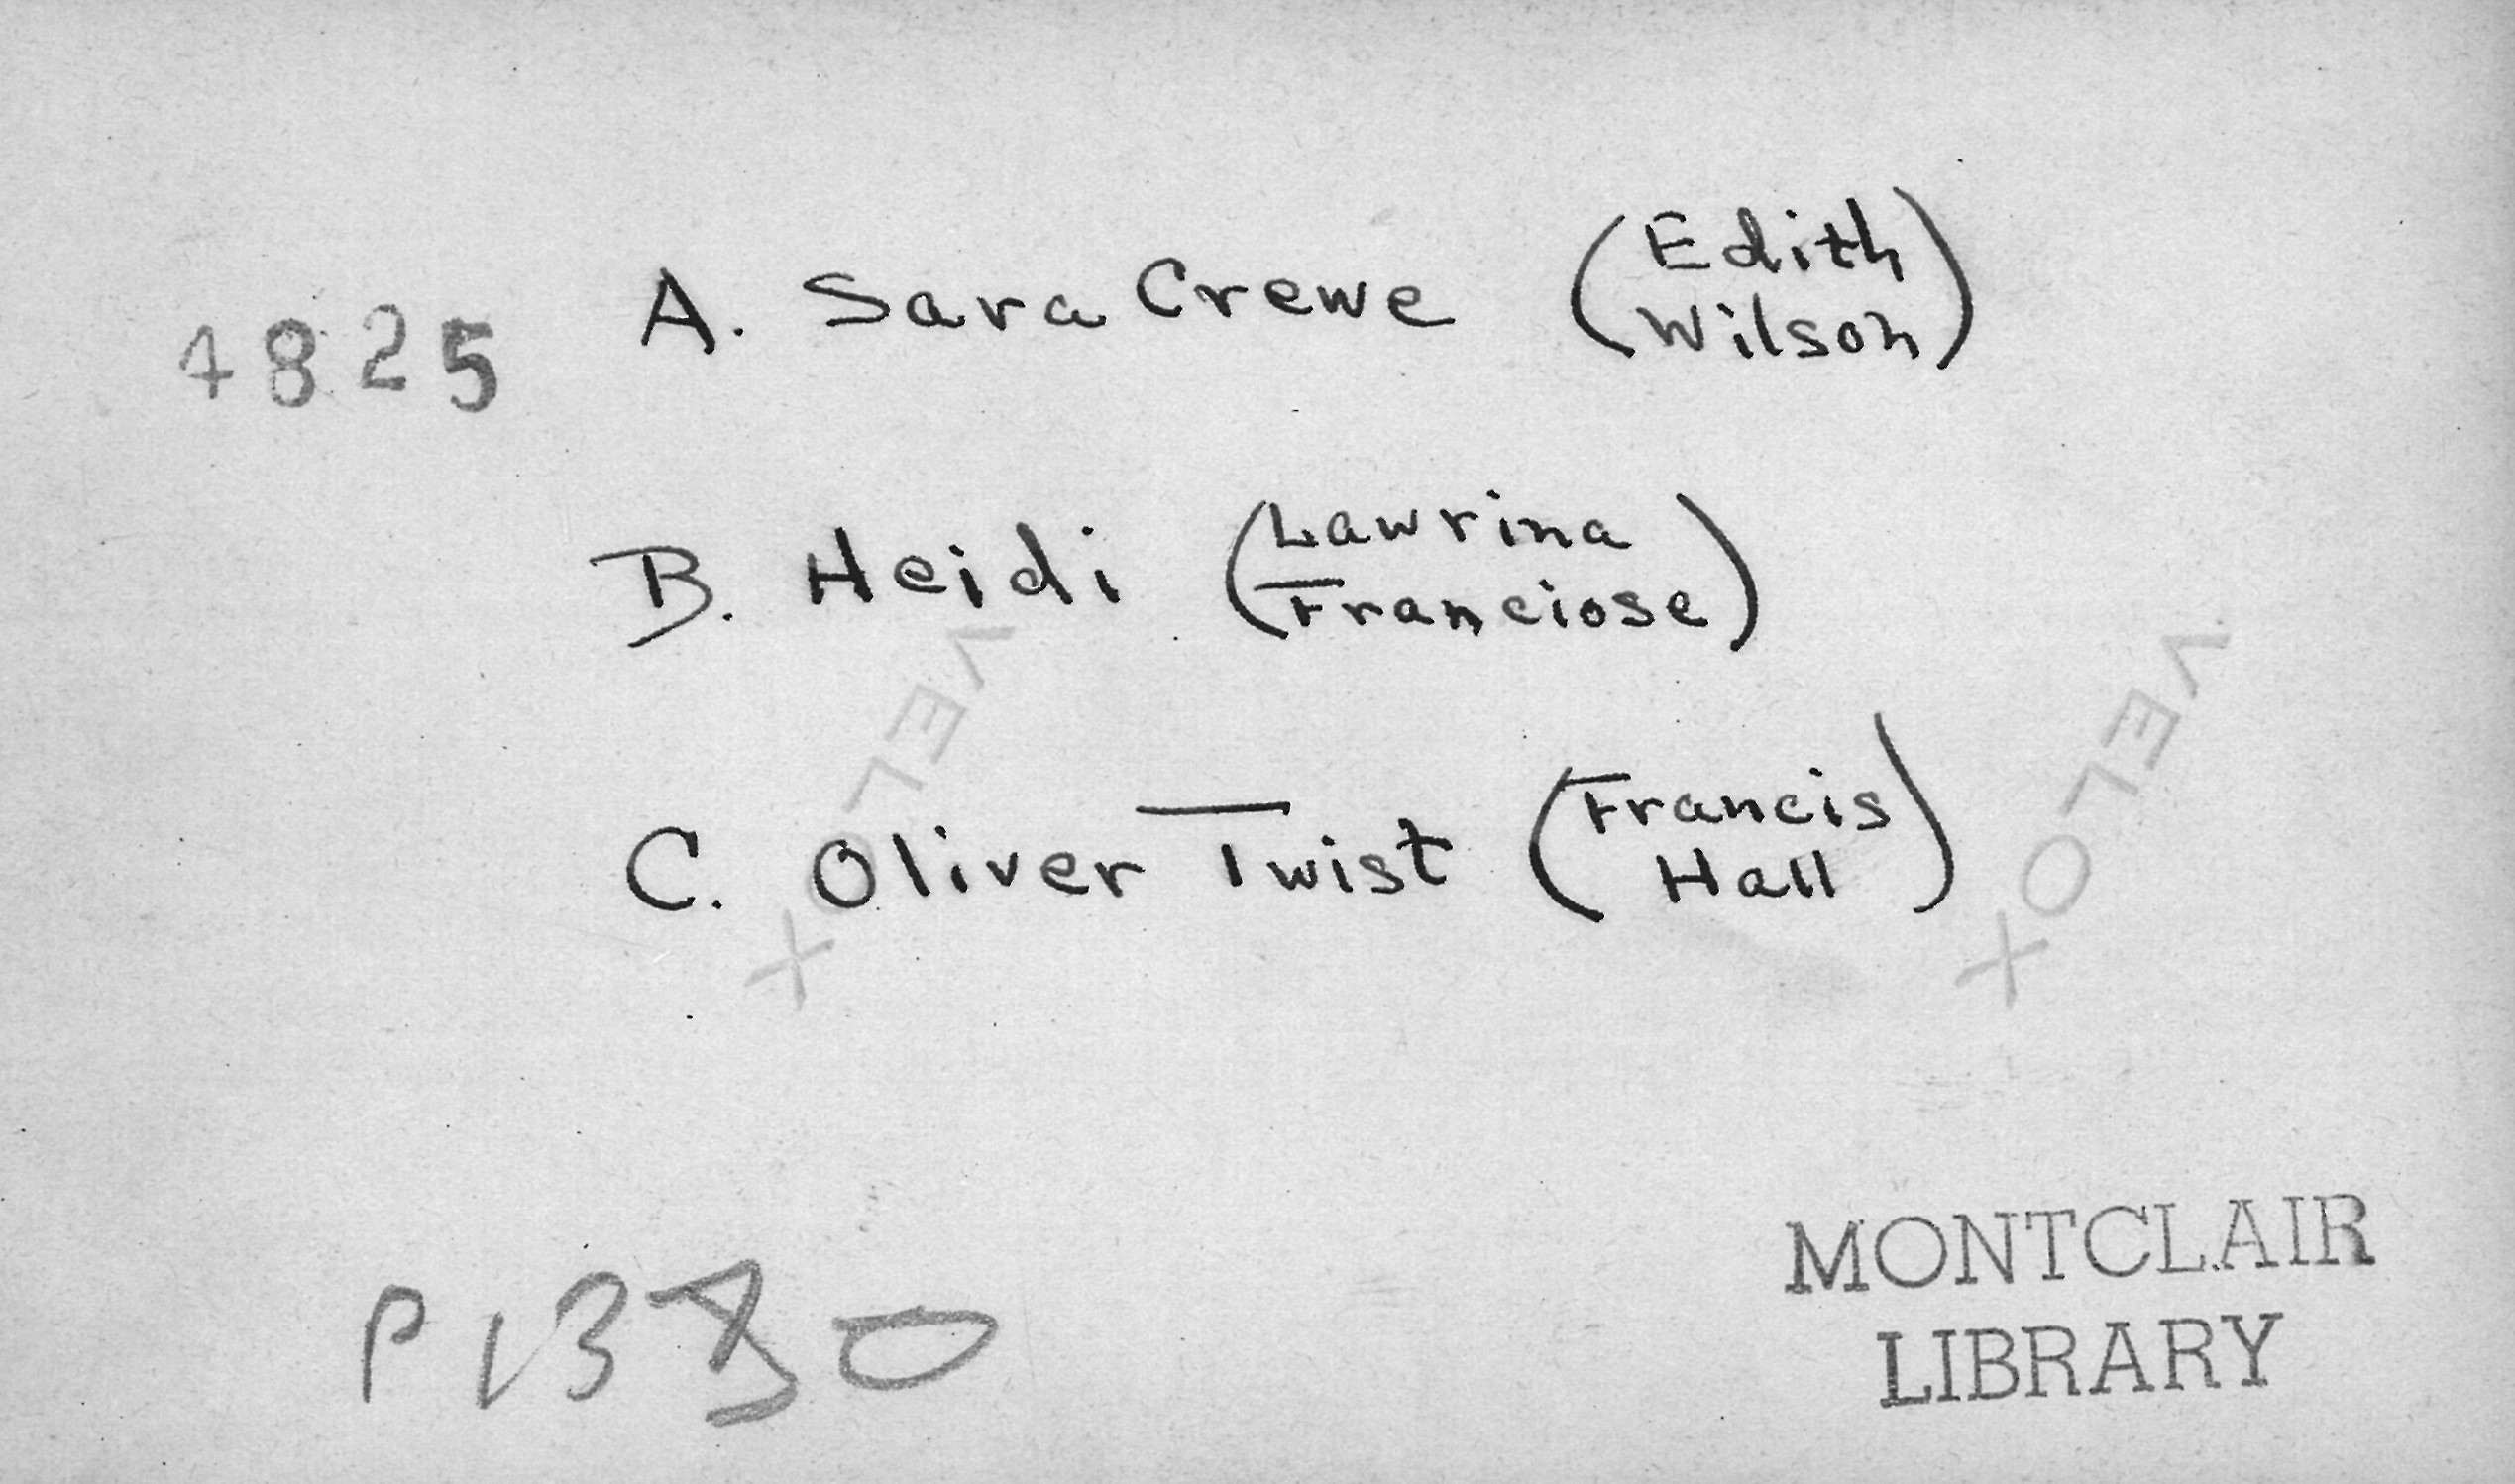 4825
A. Sara Crewe (Edith Wilson)
B. Heidi (Lawrina Franciose)
C. Oliver Twist (Francis Hall)
VELOX
VELOX
MONTCLAIR
LIBRARY